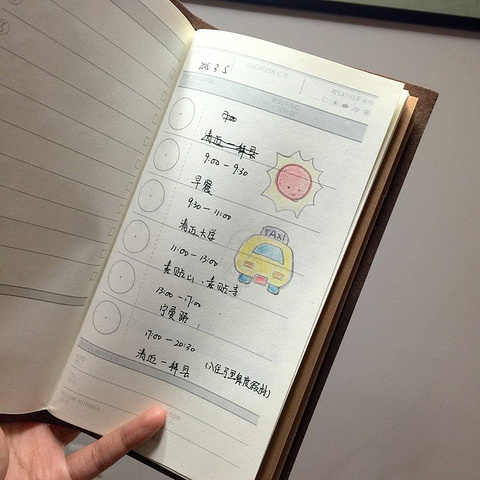 2015. 3. 5
LOCATION
WEATHER
ROUTING
7:00
清迈一拜县
9:00 - 9:30
早餐
9:30 - 11:00
清迈大学
11:00 - 13:00
素贴山、素贴寺
13:00 - 17:00
宁曼路
17:00 - 20:30
清迈一拜县
TAXI
ROOM NUMBER